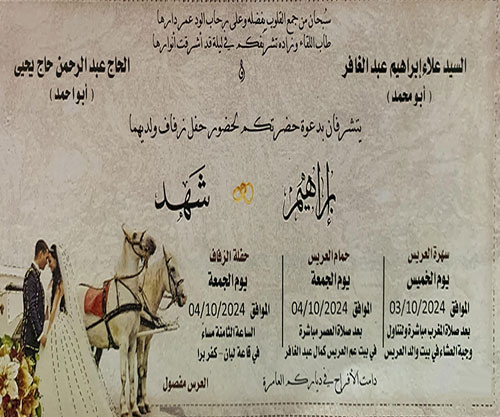 سبحان من جمع القلوب بفضله وعلى رحاب الود عمر دارها
طاب اللقاء وزاده تشريفكم في ليلة قد أشرقت أنوارها
السيد علاء إبراهيم عبد الغافر
و
الحاج عبد الرحمن حاج يحيى
(أبو محمد)
(أبو احمد)
يتشرفان بدعوة حضرتكم لحضور حفل زفاف ولديهما
إبراهيم
شهد
سهرة العريس
يوم الخميس
الموافق 03/10/2024
بعد صلاة المغرب مباشرة وتناول
وجبة العشاء في بيت والد العريس
حمام العريس
يوم الجمعة
الموافق 04/10/2024
بعد صلاة العصر مباشرة
في بيت عم العريس كمال عبد الغافر
حفلة الزفاف
يوم الجمعة
الموافق 04/10/2024
الساعة الثامنة مساءً
في قاعة ليان - كفر برا
دامت الأفراح في دياركم العامرة
العرس مفصول